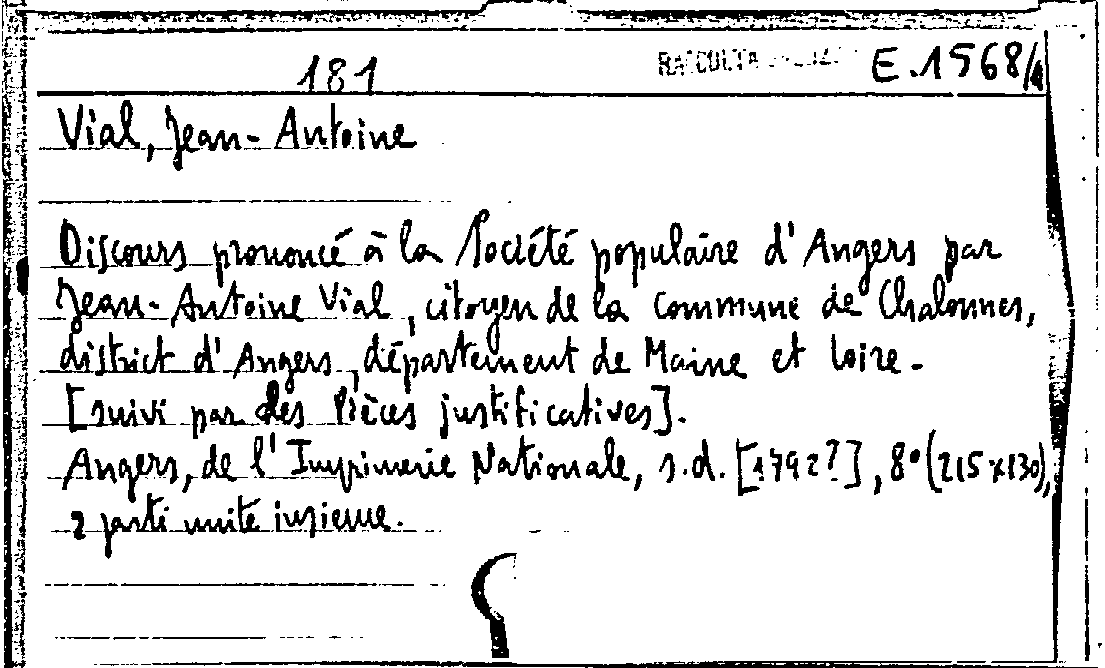 181
RACCOLTA
E.1568/1
Vial, Jean-Antoine
Discours prononcé à la Société populaire d'Angers par
Jean-Antoine Vial, citoyen de la Commune de Chalonnes,
district d'Angers, département de Maine et Loire.
[suivi par des Pièces justificatives].
Angers, de l'Imprimerie Nationale, s.d. [1792?], 8° (215x130),
2 parti unite insieme.